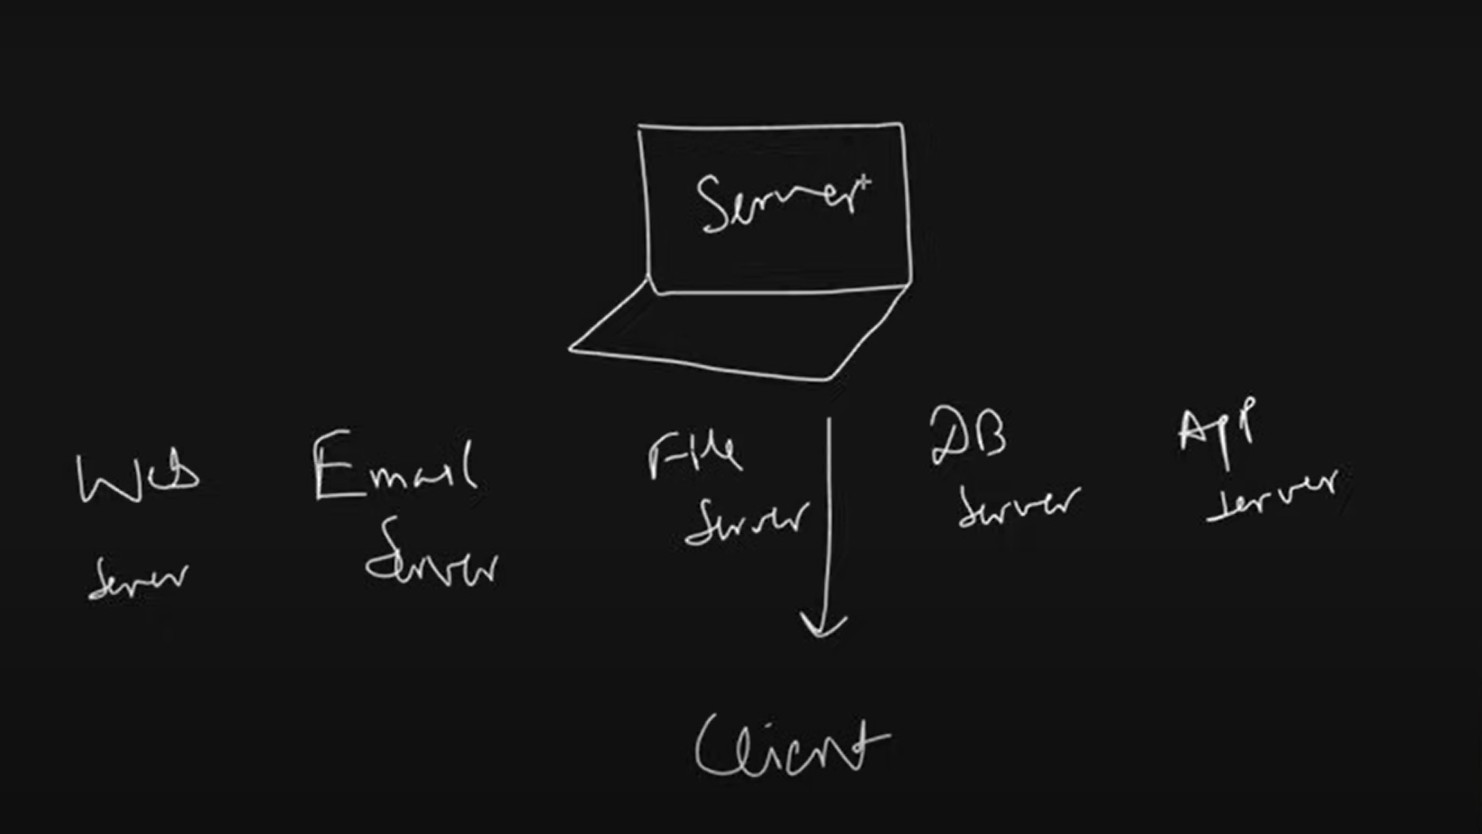 Server
Web
Server
Email
Server
File
Server
DB
Server
App
Server
Client